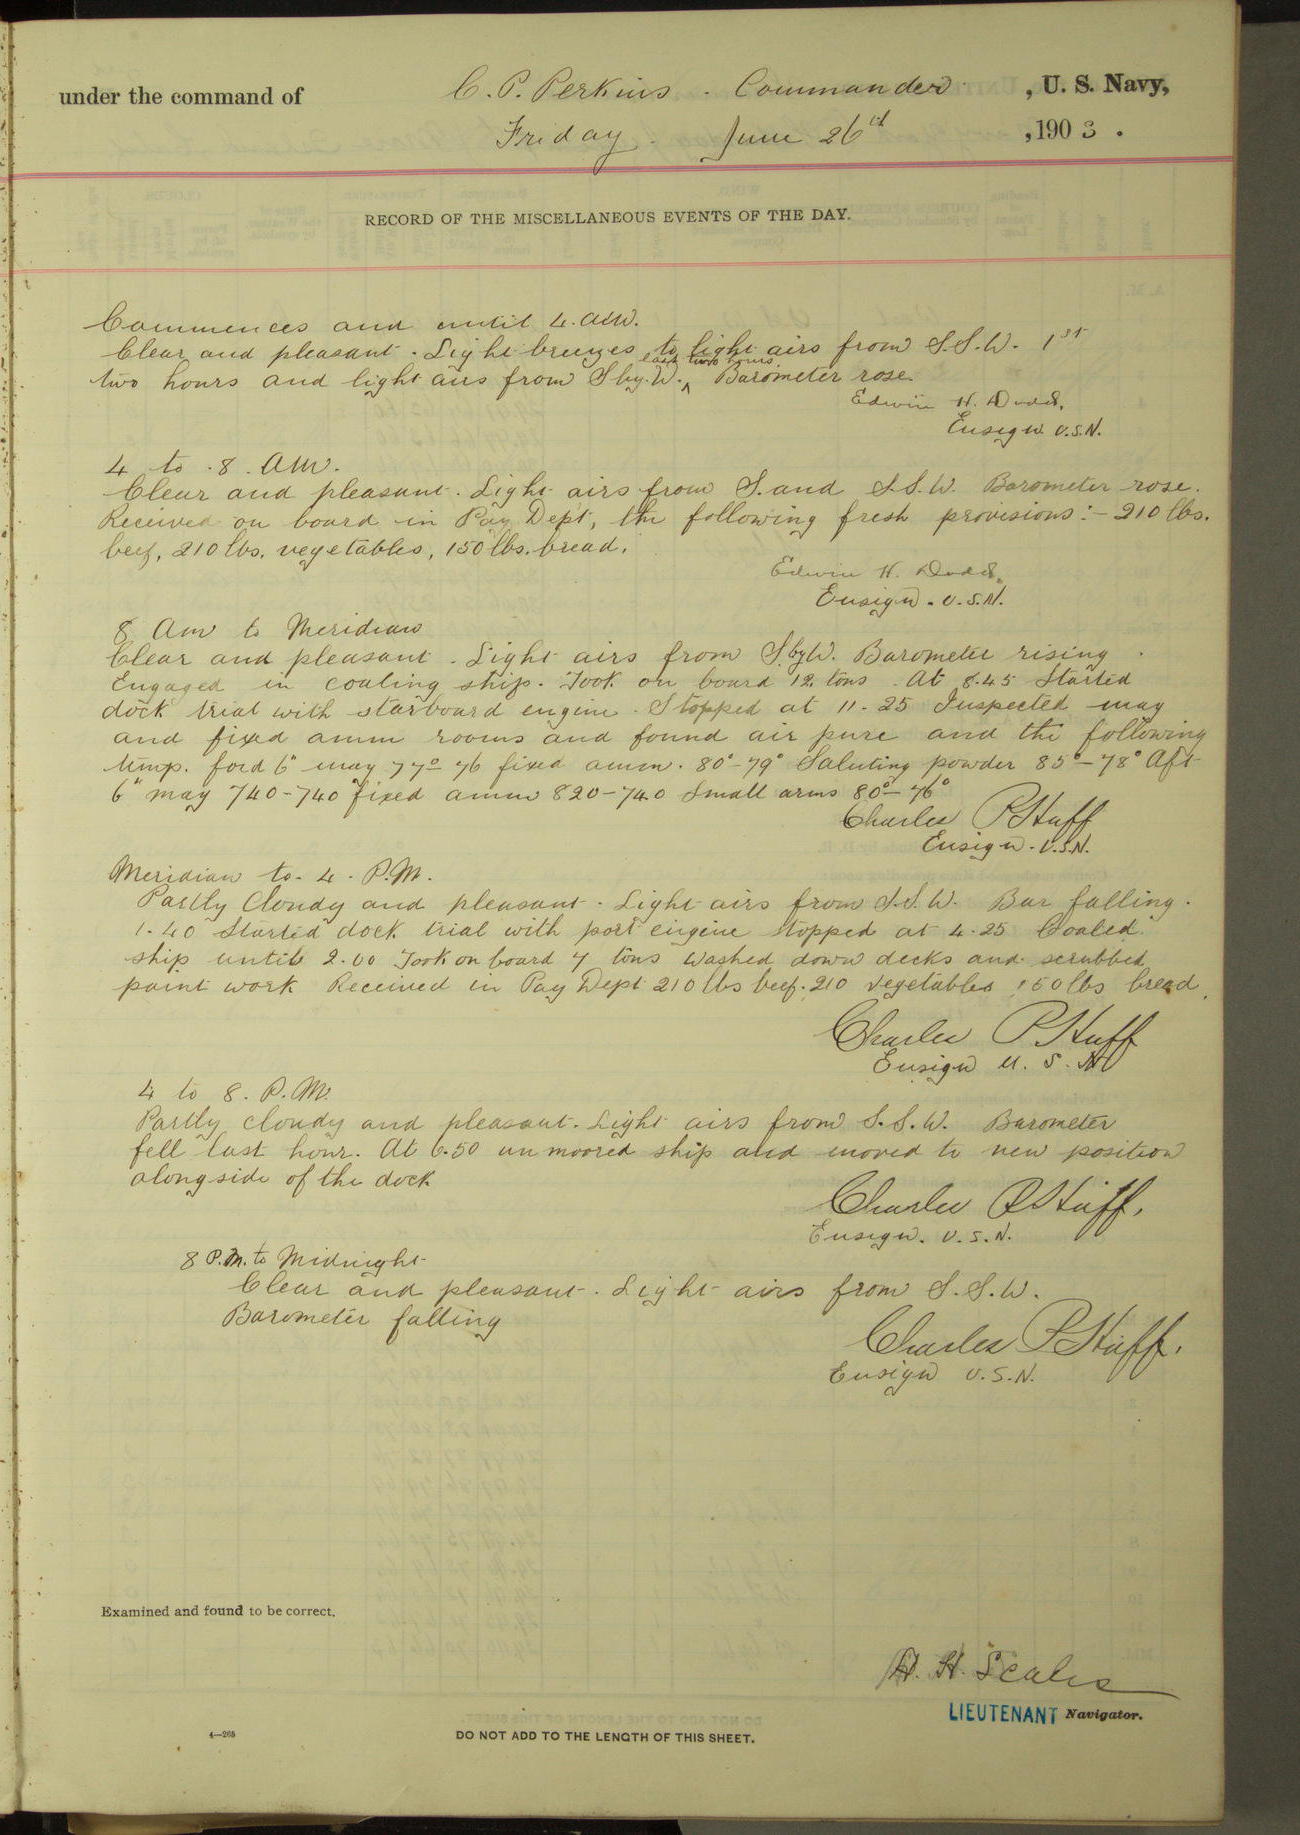 under the command of C. P. Perkins . Commander , U. S. Navy,
Friday . June 26th , 1903 .
RECORD OF THE MISCELLANEOUS EVENTS OF THE DAY.
Commences and until 4. AM.
Clear and pleasant . Light breezes to light airs from S.S.W. 1st
two hours and light airs from S by. W. ^ last two hours. Barometer rose.
Edwin H. Dodd,
Ensign U.S.N.
4 to 8 AM.
Clear and pleasant. Light airs from S. and S.S.W. Barometer rose.
Received on board in Pay Dept, the following fresh provisions:- 210 lbs.
beef, 210 lbs. vegetables, 150 lbs. bread.
Edwin H. Dodd,
Ensign. U.S.N.
8 Am to Meridian
Clear and pleasant . Light airs from S by W. Barometer rising .
Engaged in coaling ship. Took on board 12 tons . At 8.45 Started
dock trial with starboard engine . Stopped at 11-25 Inspected mag
and fixed amm rooms and found air pure and the following
temp. ford 6" mag 77°-76 fixed amm. 80°-79° Saluting powder 85°-78° Aft
6" mag 740-740 fixed amm 820-740 Small arms 80°-76°
Charles P Huff
Ensign. U.S.N.
Meridian to 4. P.M.
Partly Cloudy and pleasant . Light airs from S.S.W. Bar falling.
1.40 Started dock trial with port engine stopped at 4.25 Coaled
ship until 2.00 Took on board 7 tons Washed down decks and scrubbed
paint work Received in Pay Dept 210 lbs beef. 210 vegetables 150 lbs bread.
Charles P Huff
Ensign U. S. N
4 to 8. P.M.
Partly cloudy and pleasant. Light airs from S.S.W. Barometer
fell last hour. At 6.50 unmoored ship and moved to new position
alongside of the dock
Charles P Huff.
Ensign. U.S.N.
8 P.M. to Midnight
Clear and pleasant. Light airs from S.S.W.
Barometer falling
Charles P Huff.
Ensign U.S.N.
Examined and found to be correct.
A. H. Scales
LIEUTENANT Navigator.
4—265
DO NOT ADD TO THE LENGTH OF THIS SHEET.